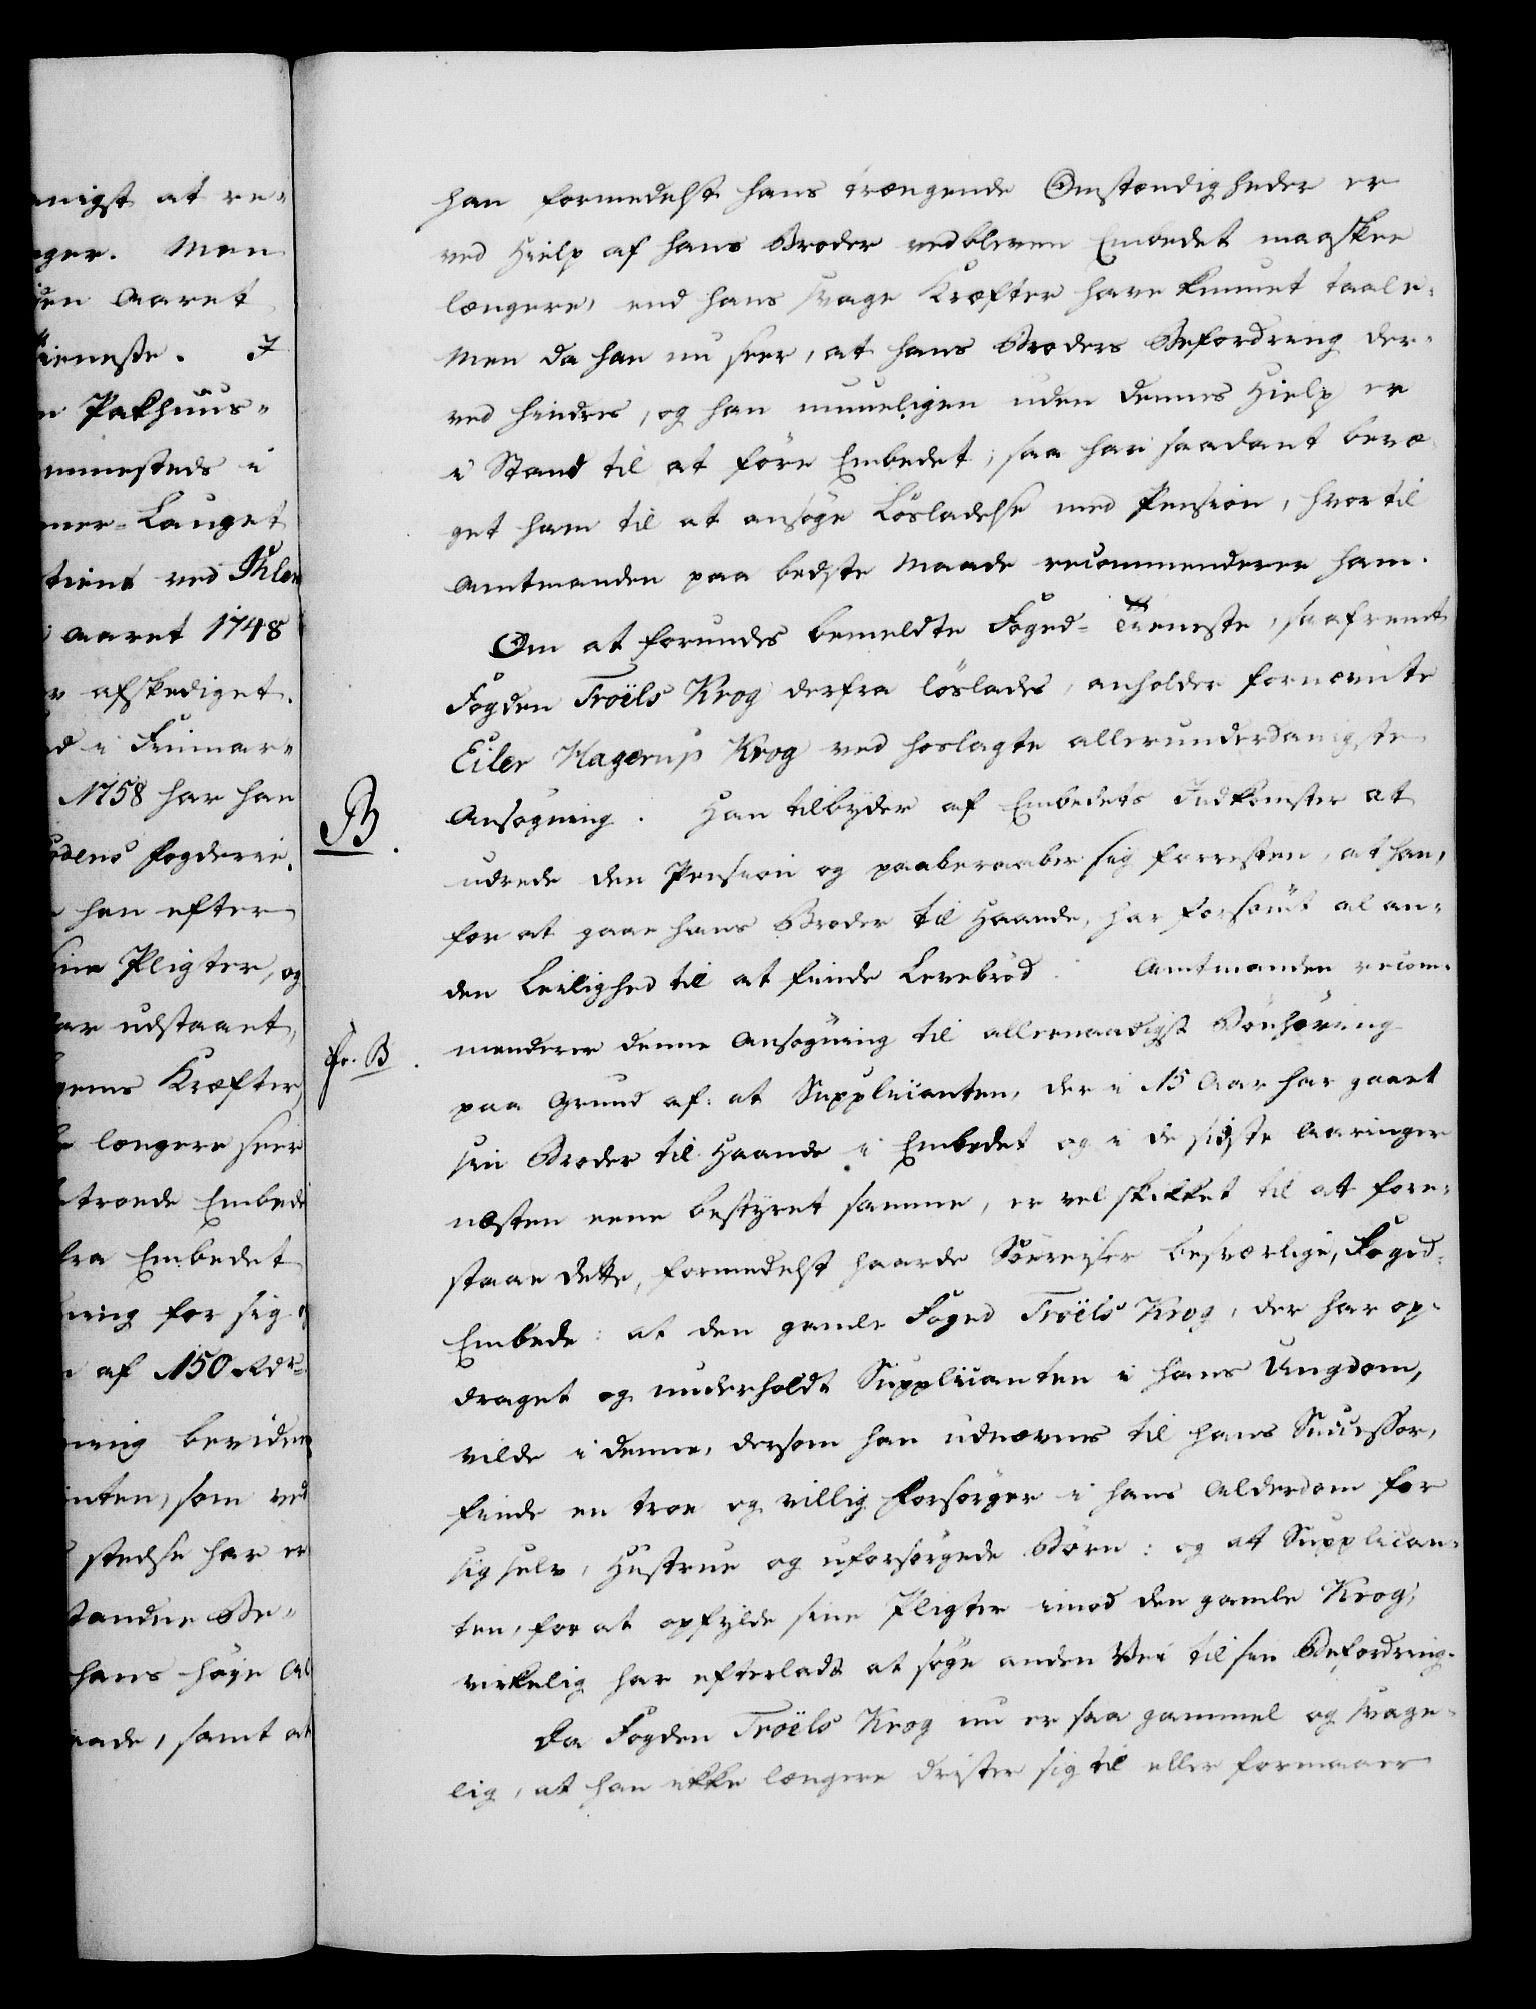 anigst at re-
ger. Men
den Aaret
tieneste. I
n Pakhuus-
mmesteds i
mer-Lauget
tient ved Ihlen
i Aaret 1748
r afskediget.
d i Finmar-
1758 har han
odens Fogderie.
han efter
sine Pligter, og
har udstaaet,
gems Kræfter,
længere seer
troede Embede
fra Embedet
ning for sig
af 150 Rdr
ning beviden
anten, som ved
stedse har er
tandne Be-
hans høye Al
aade, samt at
han formedelst hans trængende Omstændigheder er
ved Hielp af hans Broder vedbleven Embedet maaskee
længere, end hans svage Kræfter have kunnet taale.
Men da han nu seer, at hans Broders Befordring der-
ved hindres, og han umueligen uden dennes Hielp er
i Stand til at före Embedet; saa har saadant bevæ-
get ham til at ansöge Lösladelse med Pension, hvortil
Amtmanden paa bedste Maade recommenderer ham.
Om at forundes bemeldte Foged-Tieneste, saafremt
Fogden Troëls Krog derfra löslades, anholder fornævnte
Eiler Hagerup Krog ved hoslagte allerunderdanigste
B.
Ansögning. Han tilbyder af Embedets Indkomster at
udrede den Pension og paaberaaber sig forresten, at han,
for at gaae hans Broder til Haande, har forsömt al an-
den Leilighed til at finde Levebröd. Amtmanden recom-
Pr. B.
menderer denne Ansögning til allernaadigst Bönhöring
paa Grund af: at Supplicanten, der i 15 Aar har gaaet
sin Broder til Haande i Embedet og i de sidste Aaringer
næsten eene bestyret samme, er vel skikket til at fore-
staae dette, formedelst haarde Söereiser besværlige, Foged-
Embede: at den gamle Foged Troëls Krog, der har op-
draget og underholdt Supplicanten i hans Ungdom,
vilde i denne, dersom han udnævnes til hans Successor,
finde en troe og villig Forsörger i hans Alderdom for
sig selv, Hustrue og uforsörgede Börn: og at Supplican-
ten, for at opfylde sine Pligter imod den gamle Krog,
virkelig har efterladt at söge anden Vei til sin Befordring.
Da Fogden Troëls Krog nu er saa gammel og svage-
lig, at han ikke længere drister sig til eller formaaer